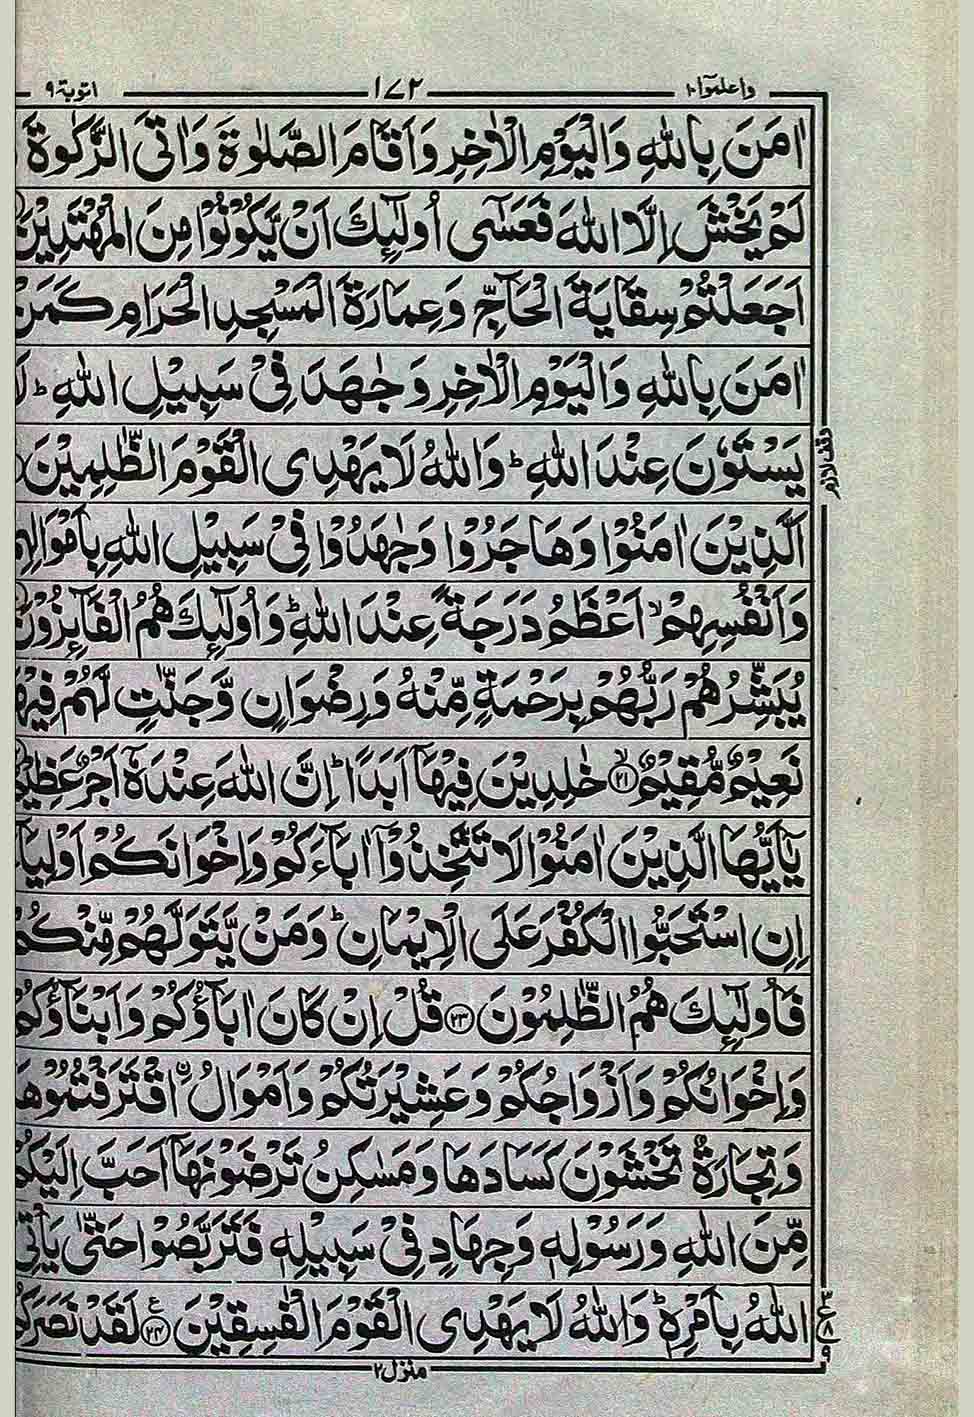 واعلموا۱۰ ۱۷۲ التوبة۹
اٰمَنَ بِاللّٰهِ وَالْيَوْمِ الْاٰخِرِ وَاَقَامَ الصَّلٰوةَ وَاٰتَى الزَّكٰوةَ
لَمْ يَخْشَ اِلَّا اللّٰهَ فَعَسٰٓى اُولٰٓئِكَ اَنْ يَّكُوْنُوْا مِنَ الْمُهْتَدِيْنَ
اَجَعَلْتُمْ سِقَايَةَ الْحَآجِّ وَعِمَارَةَ الْمَسْجِدِ الْحَرَامِ كَمَنْ
اٰمَنَ بِاللّٰهِ وَالْيَوْمِ الْاٰخِرِ وَجٰهَدَ فِيْ سَبِيْلِ اللّٰهِ ؕ لَا
يَسْتَوٗنَ عِنْدَ اللّٰهِ ؕ وَاللّٰهُ لَا يَهْدِى الْقَوْمَ الظّٰلِمِيْنَ
وقف لازم
اَلَّذِيْنَ اٰمَنُوْا وَهَاجَرُوْا وَجٰهَدُوْا فِيْ سَبِيْلِ اللّٰهِ
وَاَنْفُسِهِمْ ۙ اَعْظَمُ دَرَجَةً عِنْدَ اللّٰهِ ؕ وَاُولٰٓئِكَ هُمُ الْفَآئِزُوْنَ
يُبَشِّرُهُمْ رَبُّهُمْ بِرَحْمَةٍ مِّنْهُ وَرِضْوَانٍ وَّجَنّٰتٍ لَّهُمْ فِيْهَا
نَعِيْمٌ مُّقِيْمٌ ۙ﴿۲۱﴾ خٰلِدِيْنَ فِيْهَآ اَبَدًا ؕ اِنَّ اللّٰهَ عِنْدَهٗٓ اَجْرٌ
يٰٓاَيُّهَا الَّذِيْنَ اٰمَنُوْا لَا تَتَّخِذُوْٓا اٰبَآءَكُمْ وَاِخْوَانَكُمْ
اِنِ اسْتَحَبُّوا الْكُفْرَ عَلَى الْاِيْمَانِ ؕ وَمَنْ يَّتَوَلَّهُمْ مِّنْكُمْ
فَاُولٰٓئِكَ هُمُ الظّٰلِمُوْنَ ﴿۲۳﴾ قُلْ اِنْ كَانَ اٰبَآؤُكُمْ وَاَبْنَآؤُكُمْ
وَاِخْوَانُكُمْ وَاَزْوَاجُكُمْ وَعَشِيْرَتُكُمْ وَاَمْوَالُ ۨاقْتَرَفْتُمُوْهَا
وَتِجَارَةٌ تَخْشَوْنَ كَسَادَهَا وَمَسٰكِنُ تَرْضَوْنَهَآ اَحَبَّ اِلَيْكُمْ
مِّنَ اللّٰهِ وَرَسُوْلِهٖ وَجِهَادٍ فِيْ سَبِيْلِهٖ فَتَرَبَّصُوْا حَتّٰى يَاْتِيَ
اللّٰهُ بِاَمْرِهٖ ؕ وَاللّٰهُ لَا يَهْدِى الْقَوْمَ الْفٰسِقِيْنَ ۧ﴿۲۴﴾ لَقَدْ
منزل۲